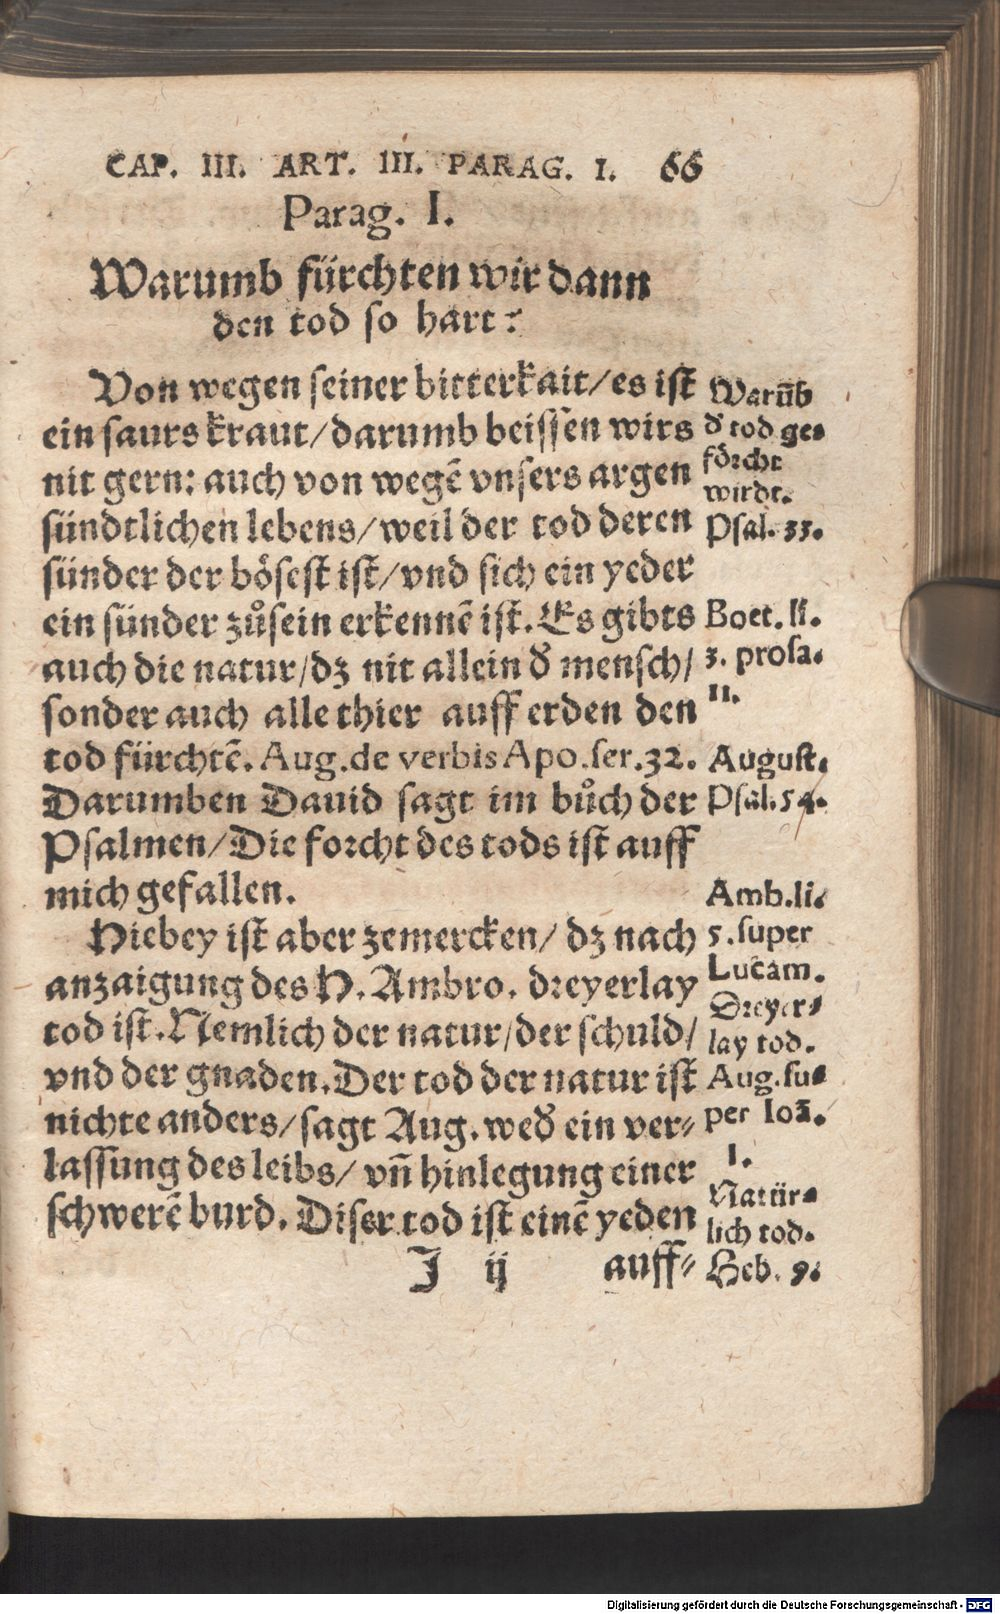 CAP. III. ART. III. PARAG. I. 66
Parag. I.
Warumb fürchten wir dann
den tod so hart?
Von wegen seiner bitterkait/es ist
ein saurs kraut/darumb beissen wirs
nit gern: auch von wegē vnsers argen
sündtlichen lebens/weil der tod deren
sünder der bösest ist/vnd sich ein yeder
ein sünder zůsein erkennē ist. Es gibts
auch die natur/dz nit allein d̄ mensch/
sonder auch alle thier auff erden den
tod fürchtē. Aug.de verbis Apo.ser.32.
Darumben Dauid sagt im bůch der
Psalmen/Die forcht des tods ist auff
mich gefallen.
Hiebey ist aber zemercken/ dz nach
anzaigung des H. Ambro. dreyerlay
tod ist. Nemlich der natur/der schuld/
vnd der gnaden. Der tod der natur ist
nichte anders/sagt Aug. wed̄ ein ver-
lassung des leibs/ vn̄ hinlegung einer
schwerē burd. Diser tod ist einē yeden
J ij auff-
Warūb
d̄ tod ge-
förcht
wirdt.
Psal. 33.
Boet. li.
3. prosa.
11.
August.
Psal. 54.
Amb.li.
5. super
Lucam.
Dreyer-
lay tod.
Aug. su-
per Ioā.
1.
Natür-
lich tod.
Heb. 9.
Digitalisierung gefördert durch die Deutsche Forschungsgemeinschaft - DFG